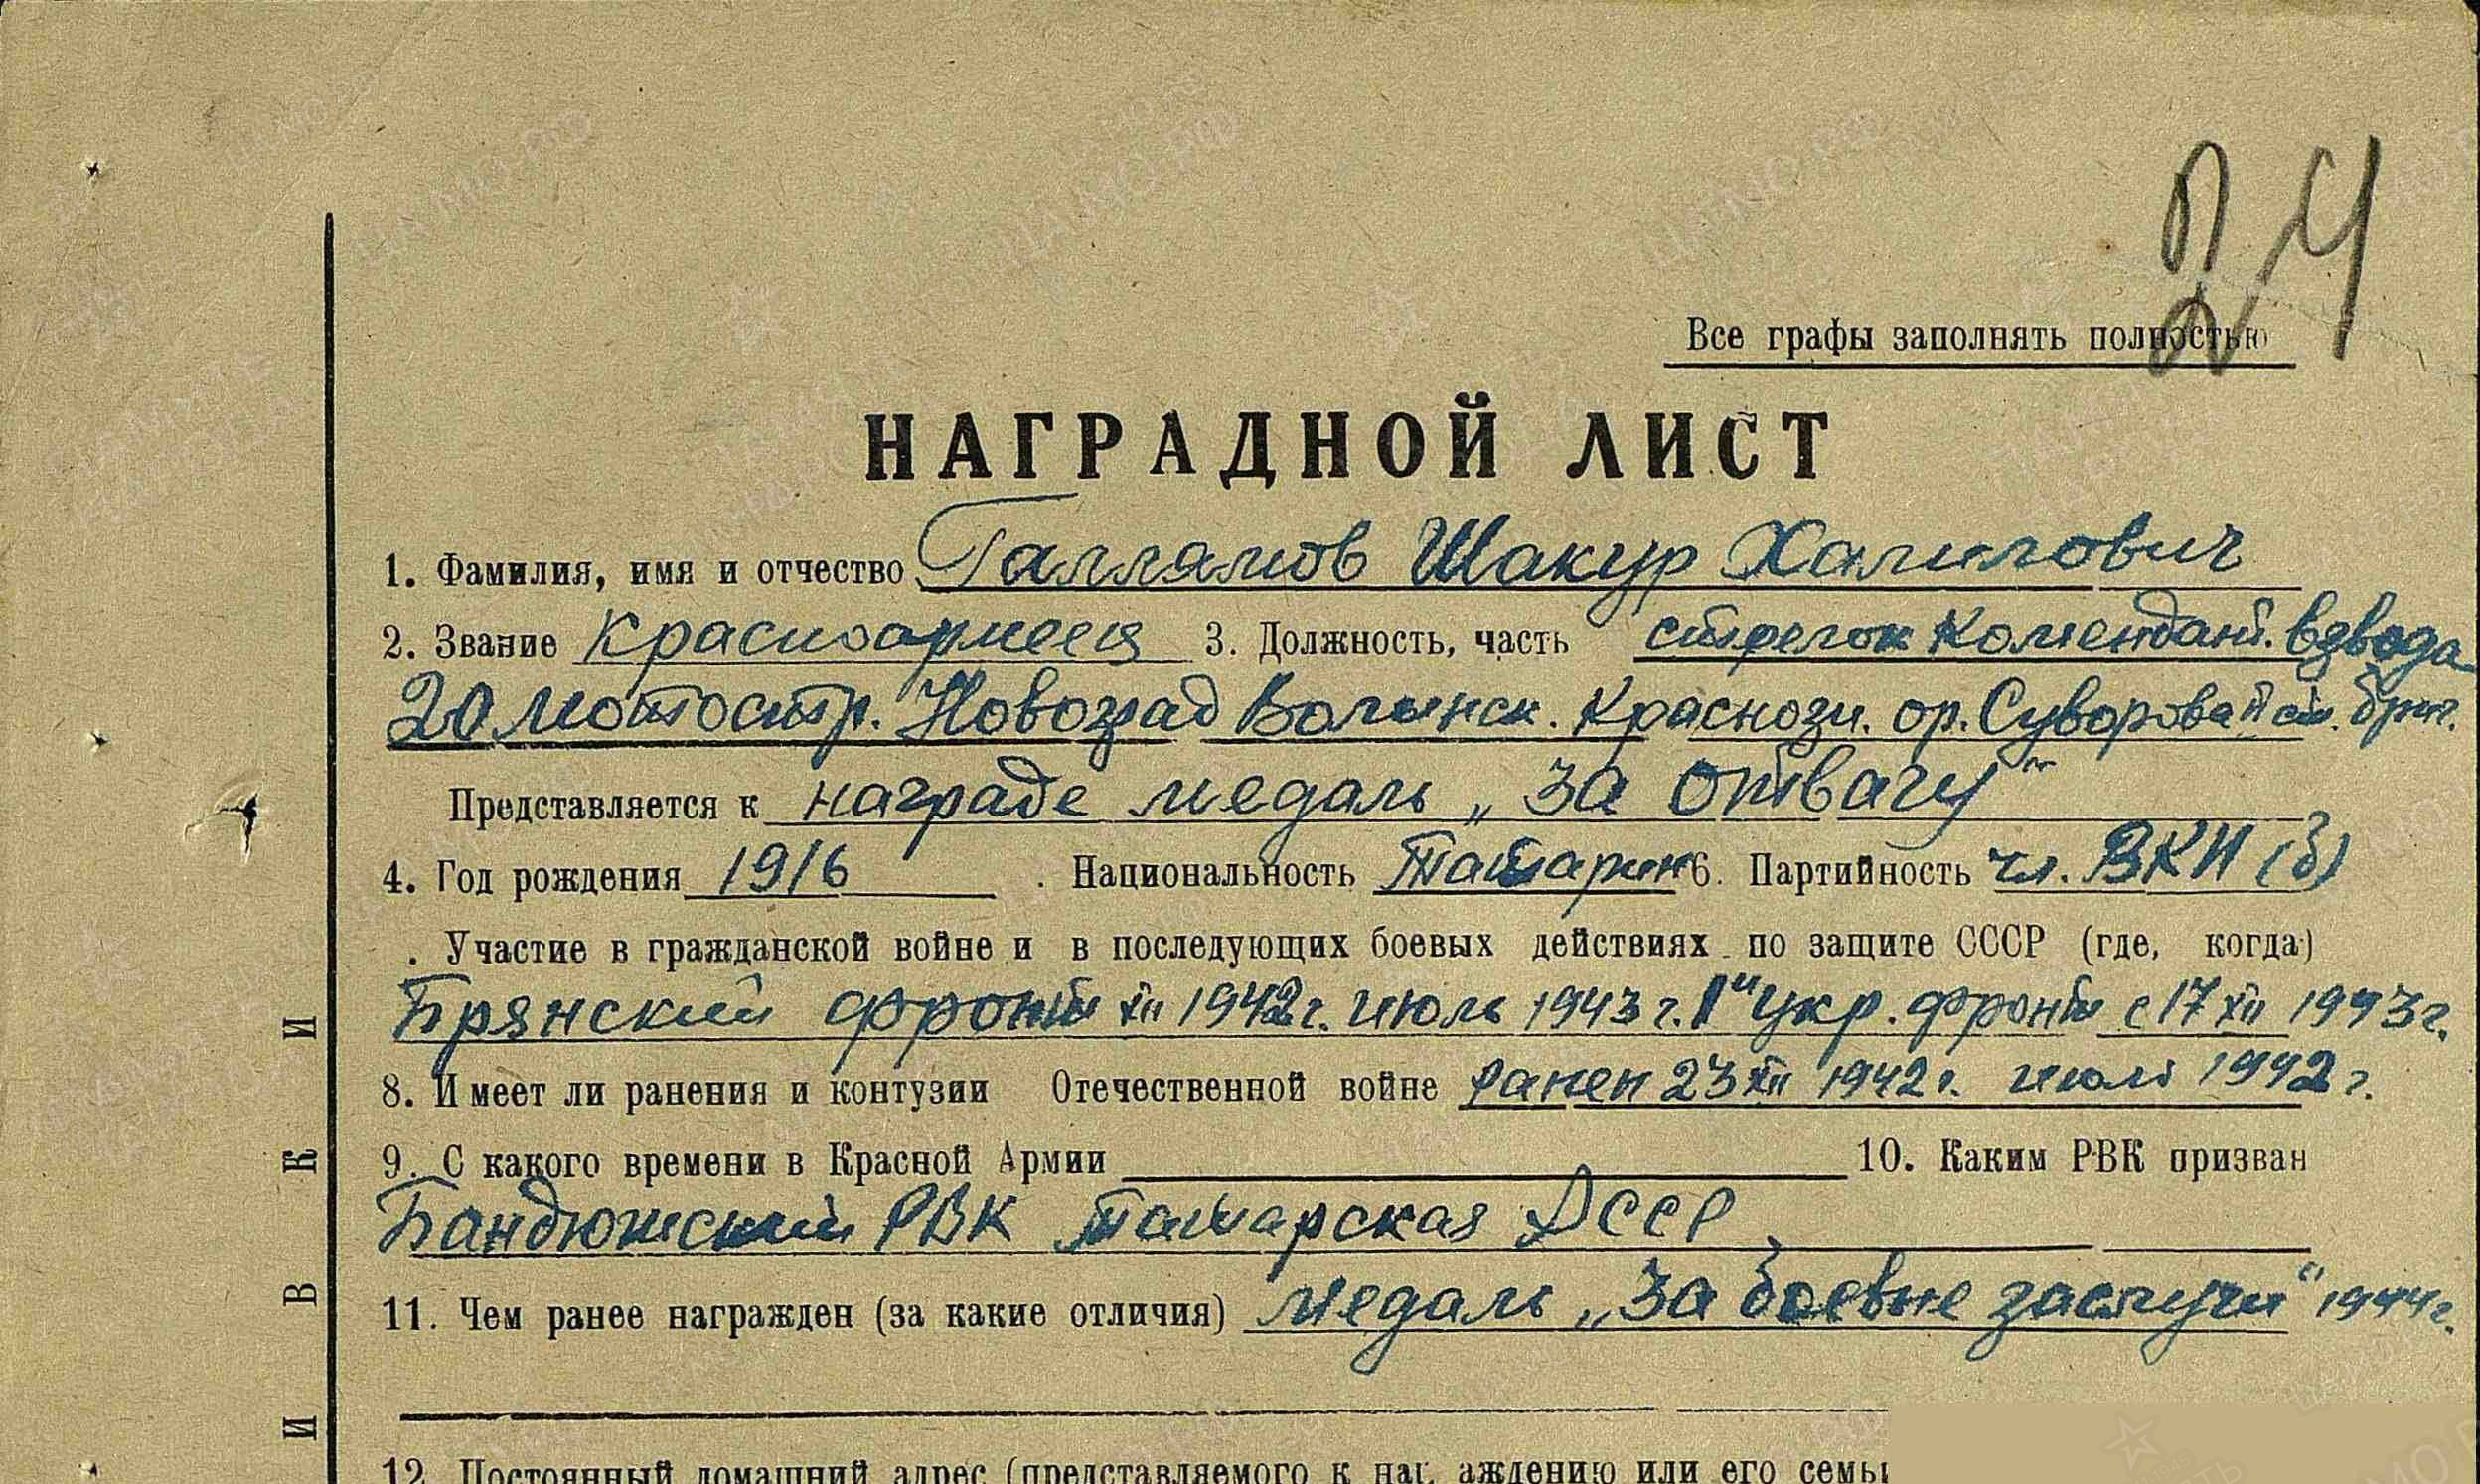 24
Все графы заполнять полностью
НАГРАДНОЙ ЛИСТ
1. Фамилия, имя и отчество Галлямов Шакур Халилович
2. Звание красноармеец 3. Должность, часть стрелок комендант. взвода
20 мотостр. Новоград Волынск. Краснозн. ор. Суворова II ст. бриг.
Представляется к награде медаль „За отвагу"
4. Год рождения 1916 . Национальность татарин 6. Партийность чл. ВКП(б)
. Участие в гражданской войне и в последующих боевых действиях по защите СССР (где, когда)
Брянский фронт XII 1942 г. июль 1943 г. 1й Укр. фронт с 17 XII 1943 г.
8. Имеет ли ранения и контузии Отечественной войне ранен 23 XII 1942 г. июль 1942 г.
9. С какого времени в Красной Армии 10. Каким РВК призван
Бандюжский РВК Татарская АССР
11. Чем ранее награжден (за какие отличия) медаль „За боевые заслуги" 1944 г.
12. Постоянный домашний адрес (представляемого к наг аждению или его семьи
И В К И